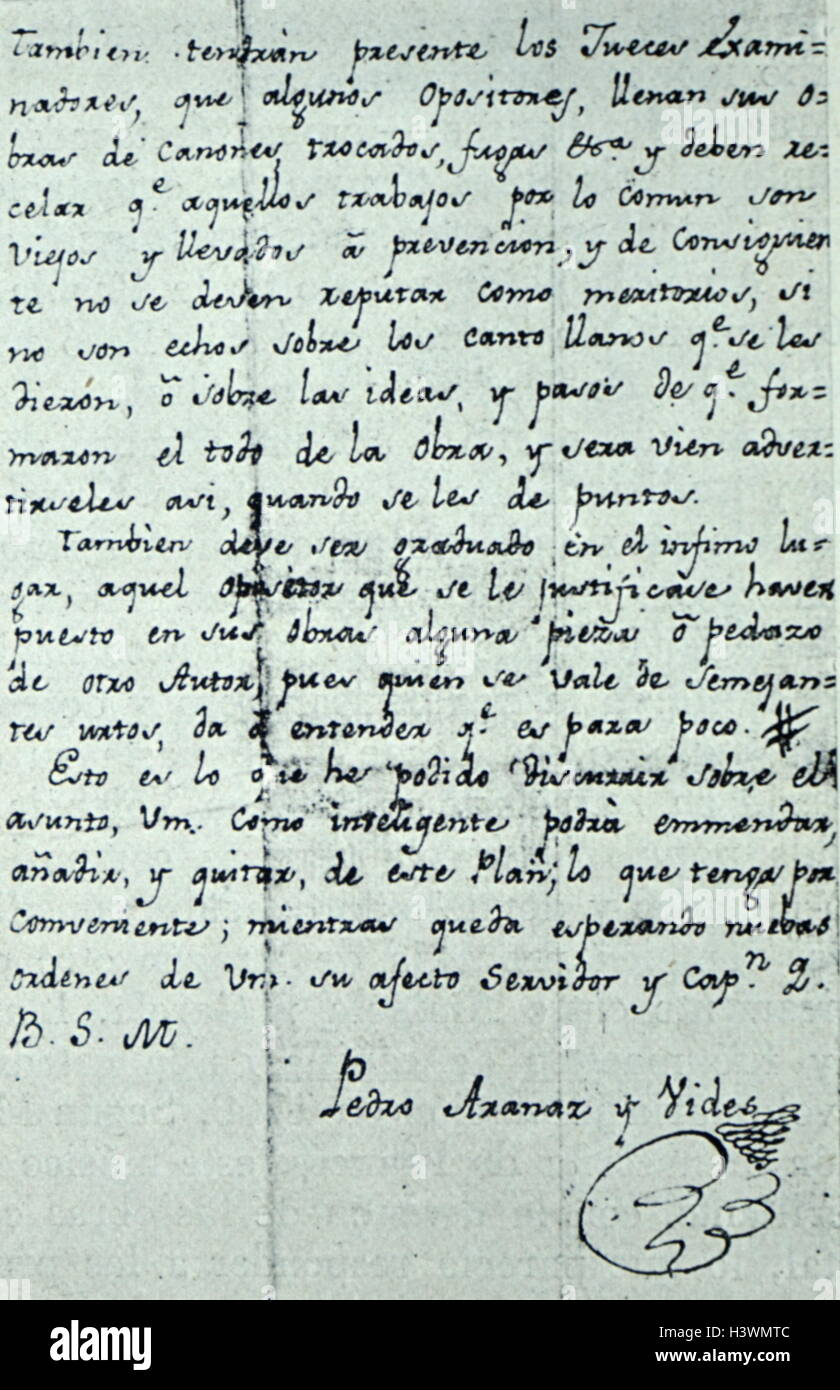 Tambien tendràn presente los Jueces exami=
nadores, que algunos opositores, llenan sus o=
bras de Canones, trocados, fugas &c.ª y deben re=
celar q.e aquellos trabajos por lo comun son
viejos y llevados â prevencion, y de Consiguien
te no se deven reputar como meritorios, si
no son echos sobre los canto llanos q.e se les
dieron, ô sobre las ideas, y pasos de q.e for=
maron el todo de la obra, y sera vien adver=
tirseles asi, quando se les de puntos.
Tambien deve ser graduado en el infimo lu=
gar, aquel opositor que se le justificase haver
puesto en sus obras alguna pieza ô pedazo
de otro Autor, pues quien se vale de semejan=
tes urtos, da â entender q.e es para poco. #
Esto es lo que he podido discurrir sobre el
asunto, Vm. como inteligente podrà emmendar,
añadir, y quitar, de este Plan, lo que tenga por
Conveniente; mientras queda esperando nuebas
ordenes de Vm. su afecto Servidor y Cap.n Q.
B. S. M.
Pedro Aranaz y Vides
alamy
Image ID: H3WMTC
www.alamy.com